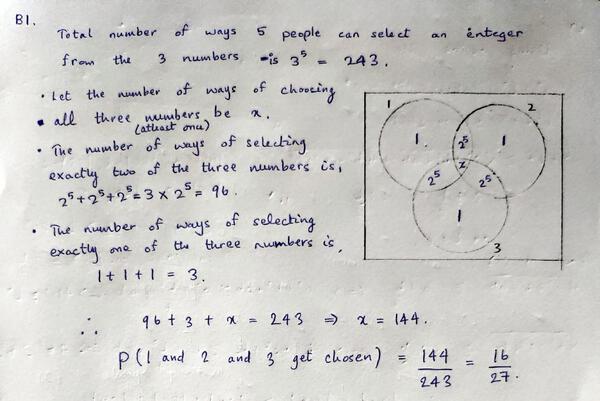 B1.
Total number of ways 5 people can select an integer
from the 3 numbers is 3^5 = 243.
• Let the number of ways of choosing
• all three numbers be x.
(atleast one)
• The number of ways of selecting
exactly two of the three numbers is,
2^5+2^5+2^5=3×2^5=96.
• The number of ways of selecting
exactly one of the three numbers is,
1+1+1 = 3.
1 2
1. 2^5 1
x
2^5 2^5
1
3
∴ 96+3+x = 243 ⇒ x = 144.
P(1 and 2 and 3 get chosen) = 144/243 = 16/27.